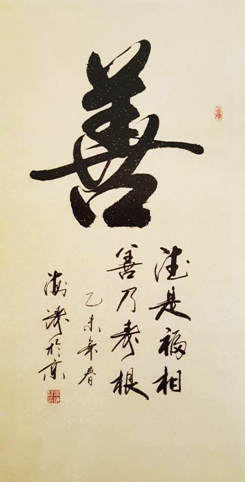 善
德是福相
善乃寿根
乙未年春
於京